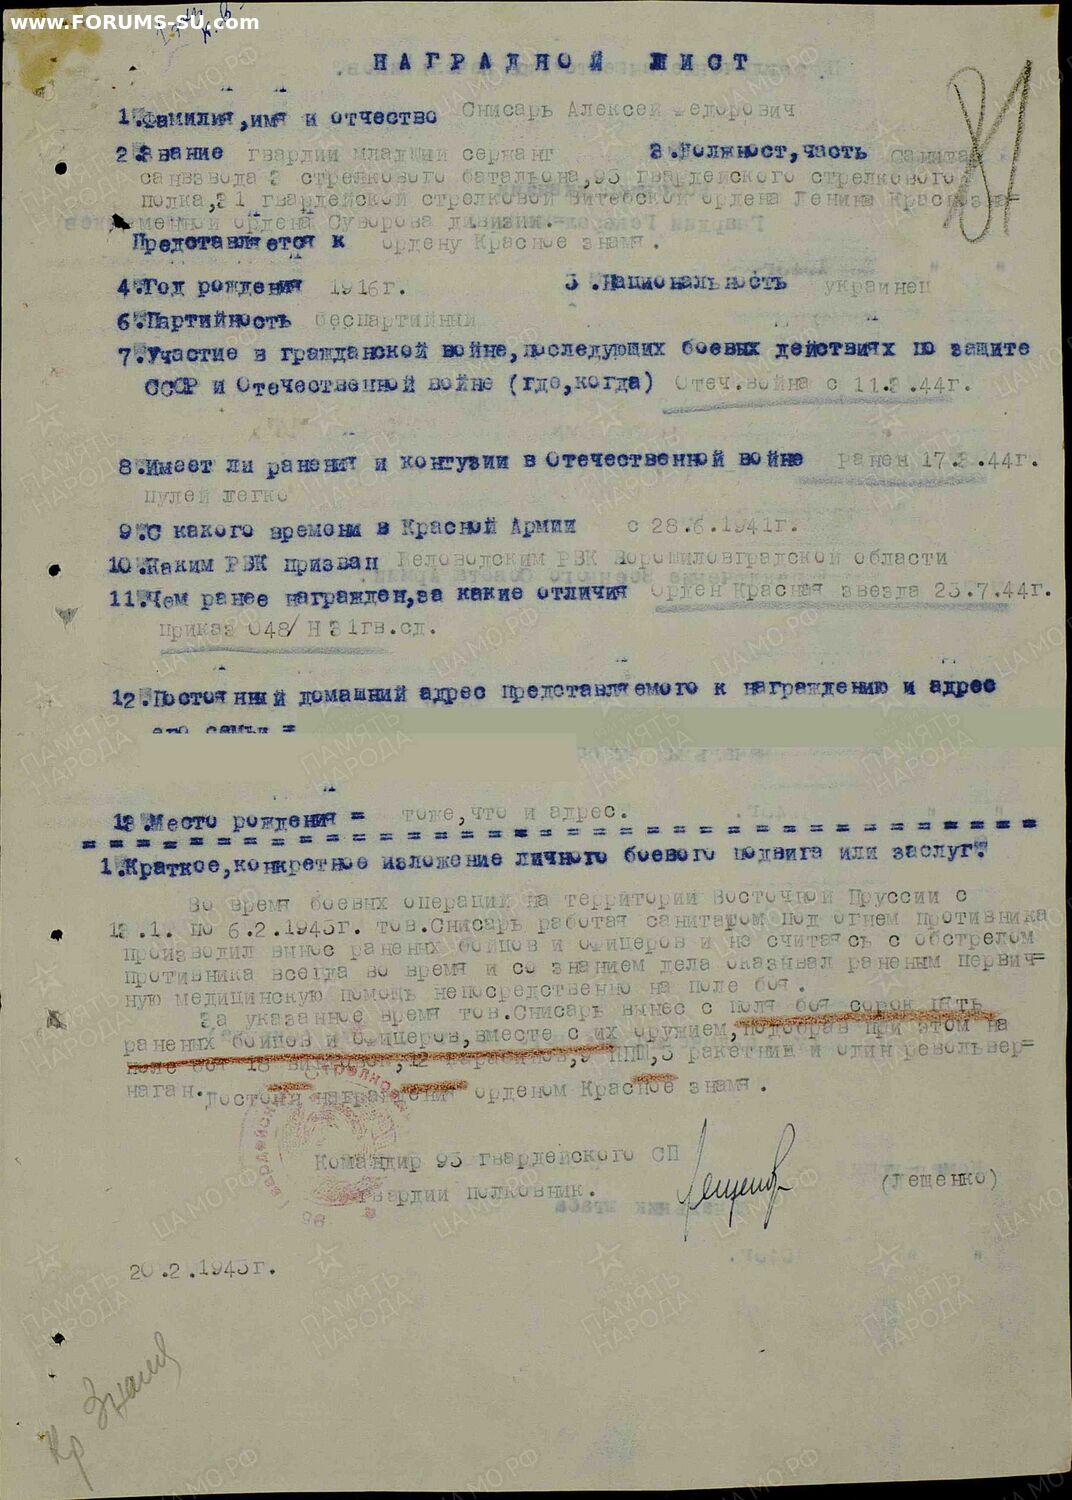 www.FORUMS-SU.com
НАГРАДНОЙ ЛИСТ
1.Фамилия,имя и отчество Снисарь Алексей Федорович
2.Звание гвардии младший сержант 3.Должност,часть Санитар
санвзвода 3 стрелкового батальона,95 гвардейского стрелкового
полка,31 гвардейской стрелковой Витебской ордена Ленина Краснозна=
менной ордена Суворова дивизии.
Представляется к ордену Красное знамя.
4.Год рождения 1916г. 5.Национальность украинец
6.Партийность беспартийный
7.Участие в гражданской войне,последующих боевых действиях по защите
СССР и Отечественной войне (где,когда) Отеч.война с 11.3.44г.
8.Имеет ли ранения и контузии в Отечественной войне ранен 17.3.44г.
пулей легко
9.С какого времени в Красной Армии с 28.6.1941г.
10.Каким РВК призван Беловодским РВК Ворошиловградской области
11.Чем ранее награжден,за какие отличия Орден Красная звезда 23.7.44г.
приказ 048/Н 31гв.сд.
12.Постоянный домашний адрес представляемого к награждению и адрес
его семьи =
13.Место рождения = тоже,что и адрес.
1.Краткое,конкретное изложение личного боевого подвига или заслуг.
Во время боевых операций на территории Восточной Пруссии с
13.1. по 6.2.1945г. тов.Снисарь работая санитаром под огнем противника
производил вынос раненых бойцов и офицеров и не считаясь с обстрелом
противника всегда во время и со знанием дела оказывал раненым первич=
ную медицинскую помощь непосредственно на поле боя.
За указанное время тов.Снисарь вынес с поля боя сорок пять
раненых бойцов и офицеров,вместе с их оружием,подобрав при этом на
поле боя 18 винтовок,12 карабинов,9 ППШ,3 ракетниц и один револьвер=
наган.
Достоин награждения орденом Красное знамя.
Командир 95 гвардейского СП
гвардии полковник. Лещенко (Лещенко)
20.2.1945г.
Кр Знамя
81